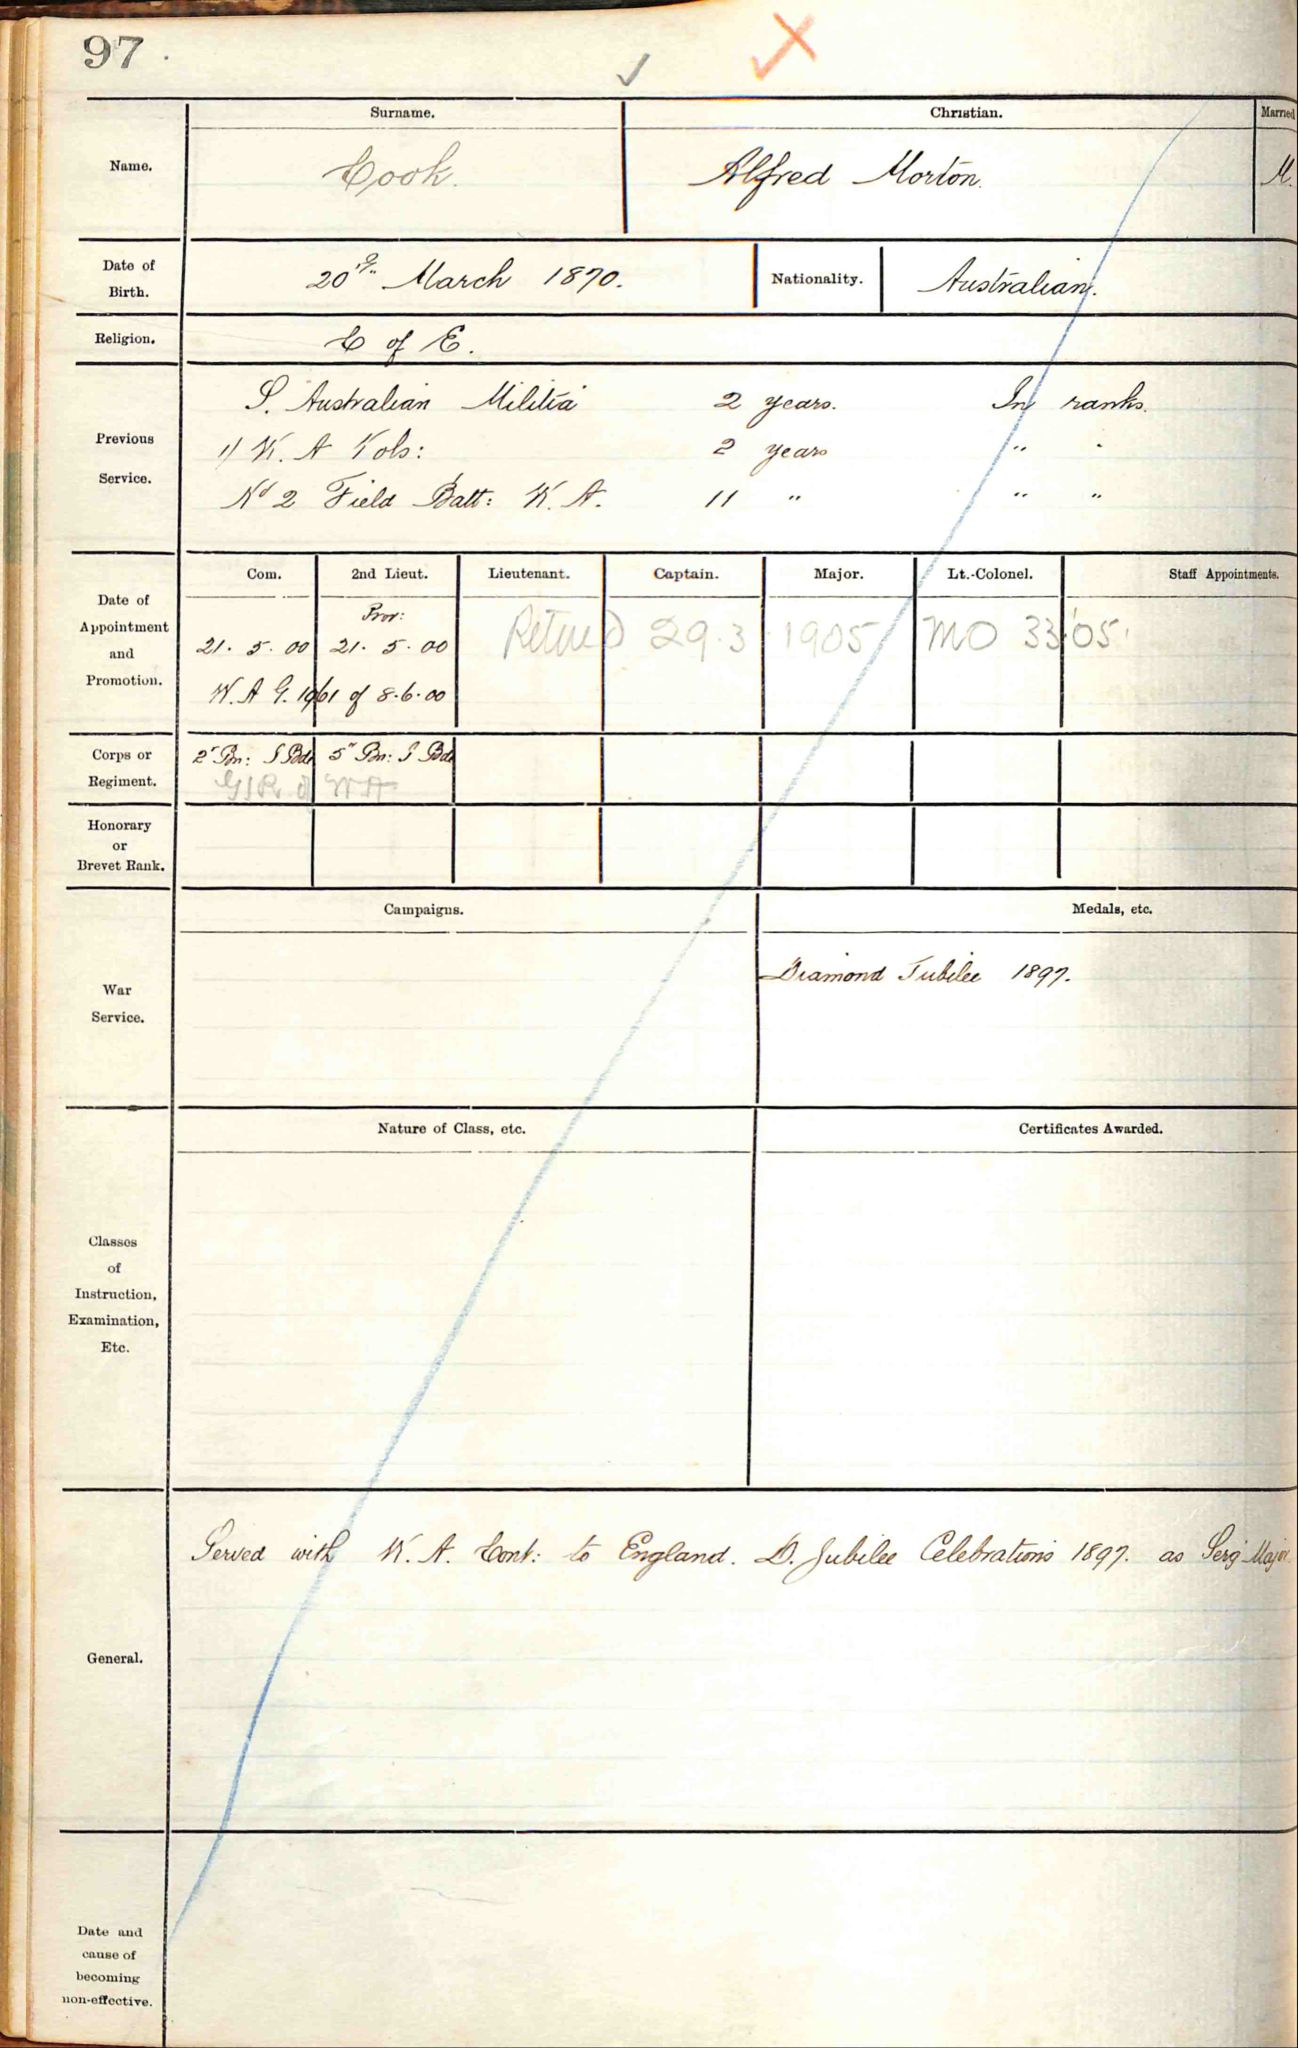 97
Surname. Christian. Married
Name. Cook. Alfred Morton. M.
Date of Birth. 20th March 1870. Nationality. Australian.
Religion. C of E.
Previous Service.
S. Australian Militia 2 years. In ranks.
W. A Vols: 2 years " "
No 2 Field Batt: W. A. 11 " " "
Date of Appointment and Promotion.
Com. 2nd Lieut. Lieutenant. Captain. Major. Lt.-Colonel. Staff Appointments.
Prov:
21. 5. 00 21. 5. 00 Retired 29.3 1905 MO 33/05.
W. A G. 1961 of 8.6.00
Corps or Regiment.
2" Bn: I Bde 5" Bn: I Bde
G I R of W A
Honorary or Brevet Rank.
War Service.
Campaigns. Medals, etc.
Diamond Jubilee 1897.
Classes of Instruction, Examination, Etc.
Nature of Class, etc. Certificates Awarded.
General.
Served with W. A. Cont: to England. D. Jubilee Celebrations 1897. as Serg Major.
Date and cause of becoming non-effective.